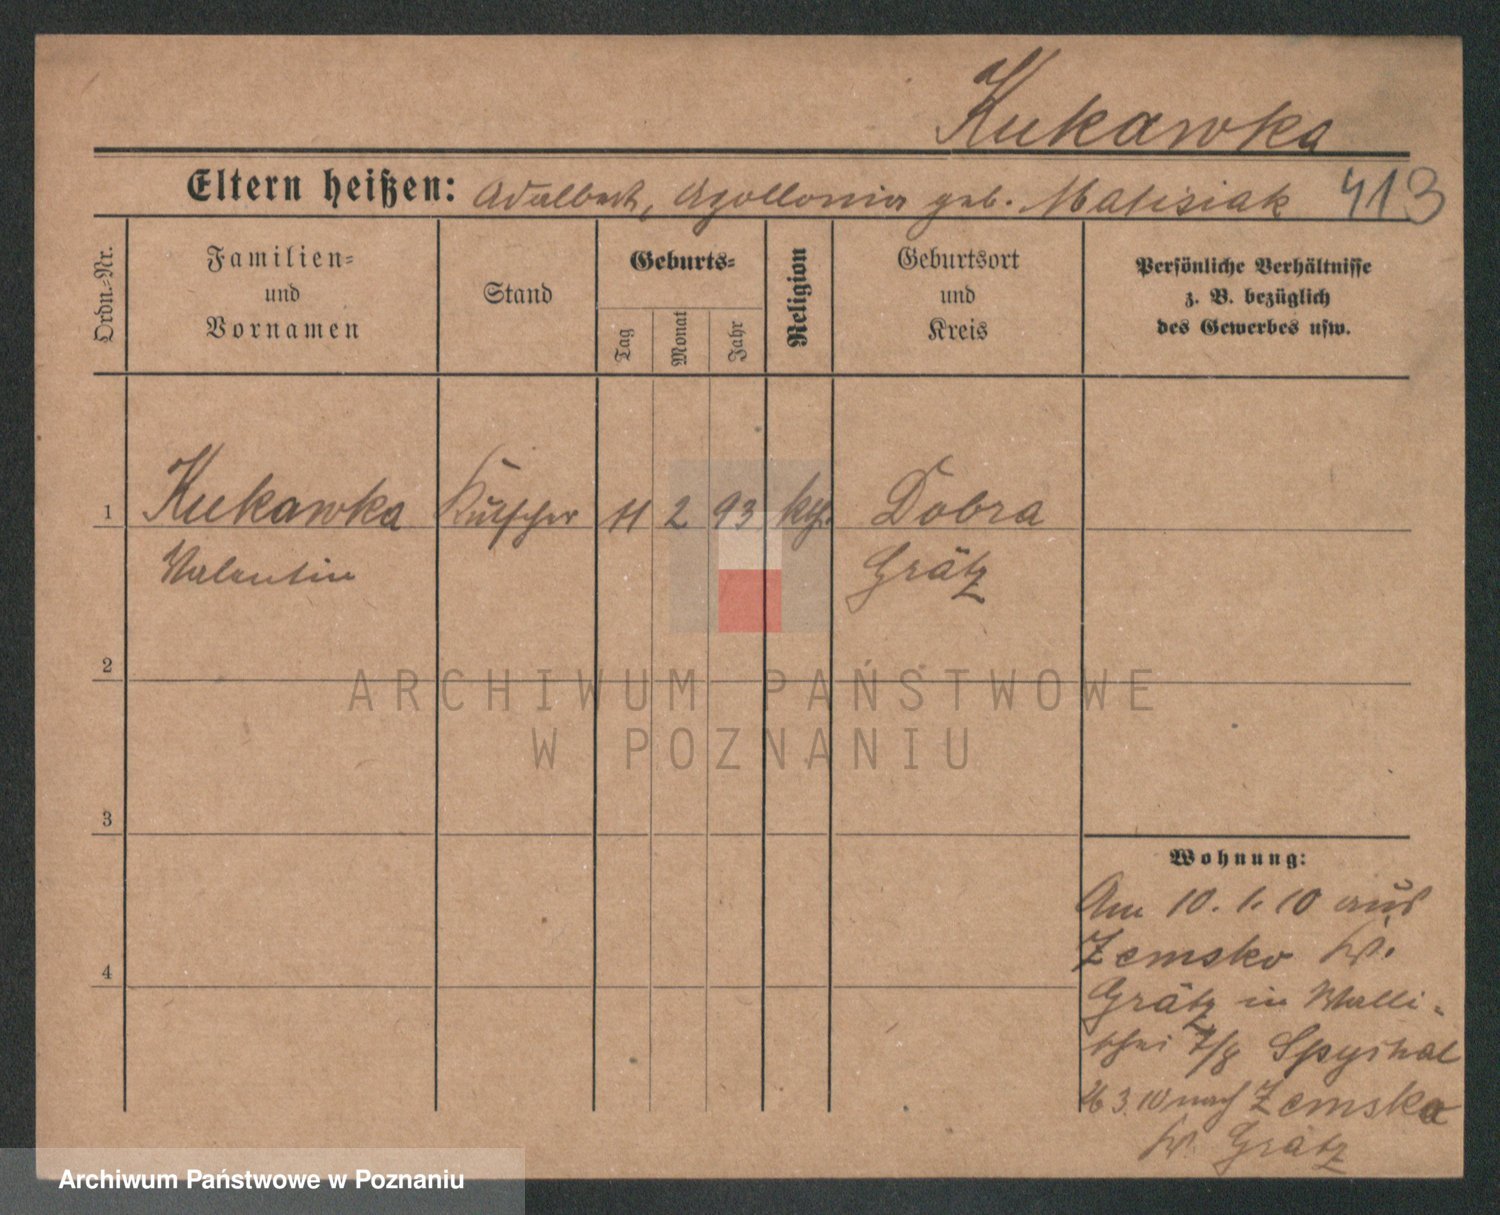 Kukawka
Eltern heißen: Adalbert, Apollonia geb. Matysiak 413
Ordn.-Nr.
Familien-
und
Vornamen
Stand
Geburts-
Tag
Monat
Jahr
Religion
Geburtsort
und
Kreis
Persönliche Verhältnisse
z. B. bezüglich
des Gewerbes usw.
1 Kukawka Kutscher 11 2 93 kth. Dobra
Valentin Grätz
2
ARCHIWUM PAŃSTWOWE
W POZNANIU
3
4
Wohnung:
Am 10. 1. 10 aus
Zemsko Kr.
Grätz in Walli-
schei 7/8
3. 10 nach Zemsko
Kr. Grätz
Archiwum Państwowe w Poznaniu